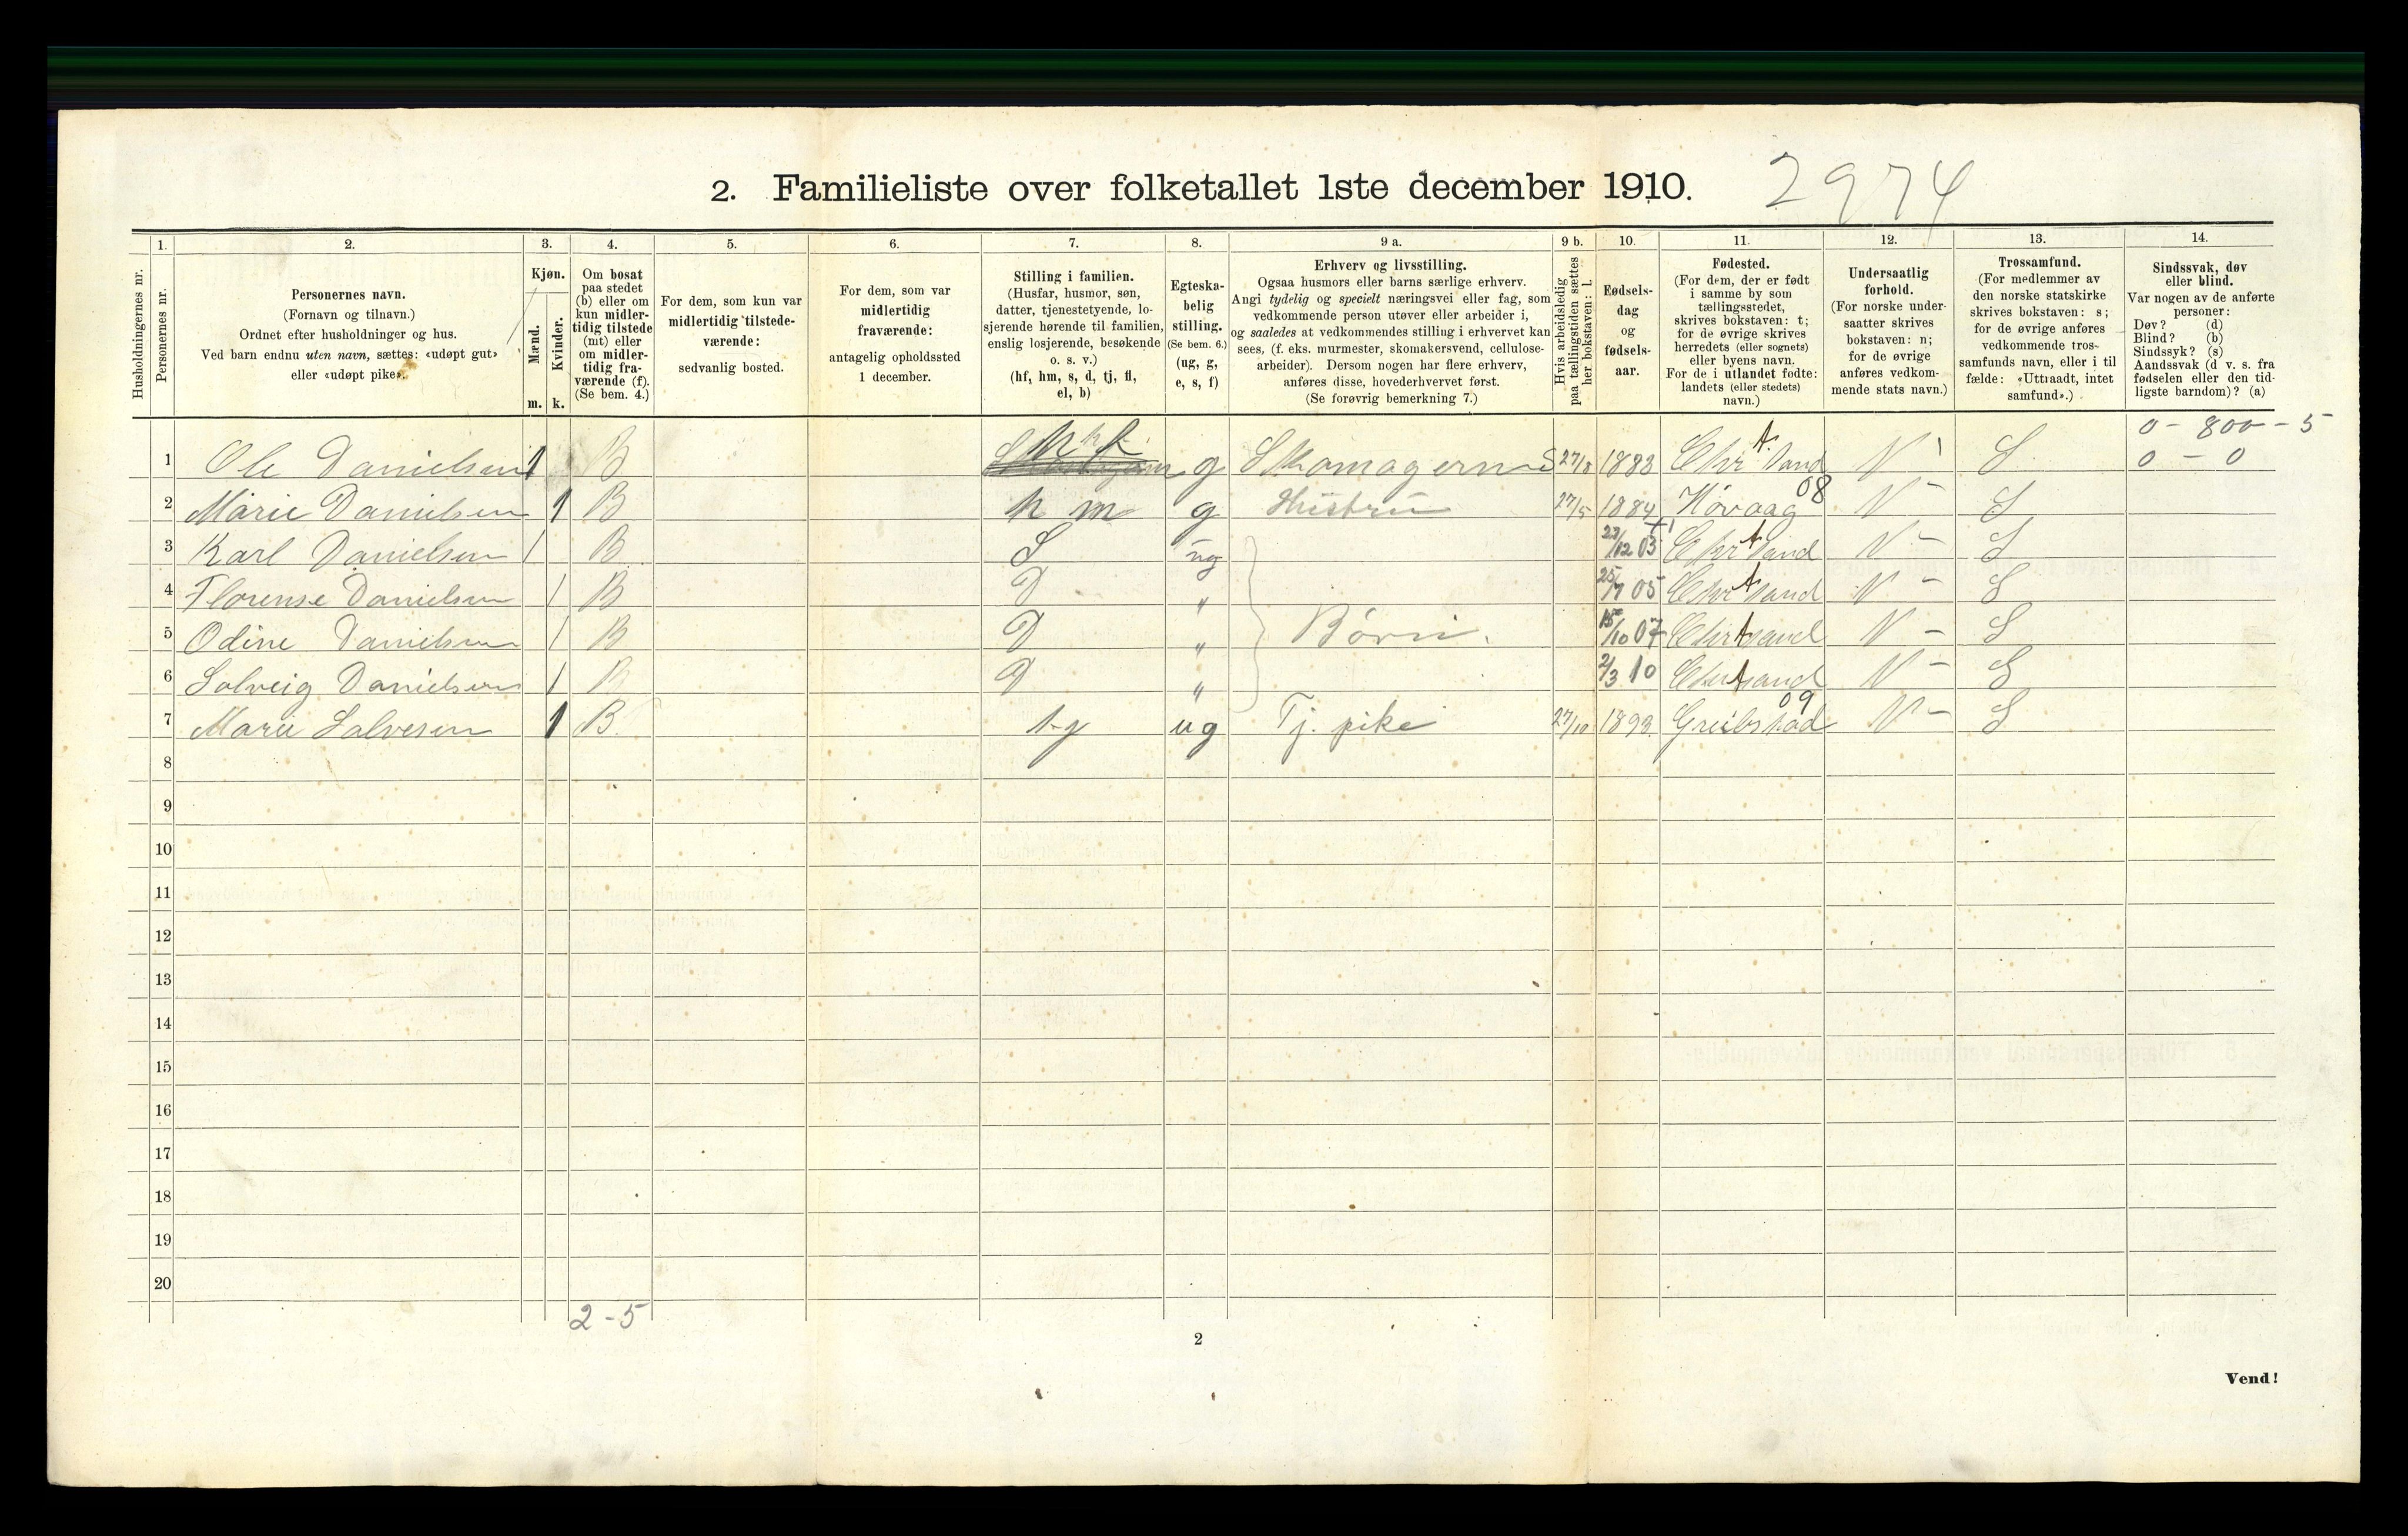 2. Familieliste over folketallet 1ste december 1910. 2974
Husholdningernes nr.
1. Personernes nr.
2. Personernes navn.
(Fornavn og tilnavn.)
Ordnet efter husholdninger og hus.
Ved barn endnu uten navn, sættes: «udøpt gut»
eller «udøpt pike».
3. Kjøn.
Mænd. m.
Kvinder. k.
4. Om bosat
paa stedet
(b) eller om
kun midler-
tidig tilstede
(mt) eller
om midler-
tidig fra-
værende (f).
(Se bem. 4.)
5. For dem, som kun var
midlertidig tilstede-
værende:
sedvanlig bosted.
6. For dem, som var
midlertidig
fraværende:
antagelig opholdssted
1 december.
7. Stilling i familien.
(Husfar, husmor, søn,
datter, tjenestetyende, lo-
sjerende hørende til familien,
enslig losjerende, besøkende
o. s. v.)
(hf, hm, s, d, tj, fl,
el, b)
8. Egteska-
belig
stilling.
(Se bem. 6.)
(ug, g,
e, s, f)
9 a. Erhverv og livsstilling.
Ogsaa husmors eller barns særlige erhverv.
Angi tydelig og specielt næringsvei eller fag, som
vedkommende person utøver eller arbeider i,
og saaledes at vedkommendes stilling i erhvervet kan
sees, (f. eks. murmester, skomakersvend, cellulose-
arbeider). Dersom nogen har flere erhverv,
anføres disse, hovederhvervet først.
(Se forøvrig bemerkning 7.)
9 b. Hvis arbeidsledig
paa tællingstiden sættes
her bokstaven: l.
10. Fødsels-
dag
og
fødsels-
aar.
11. Fødested.
(For dem, der er født
i samme by som
tællingsstedet,
skrives bokstaven: t;
for de øvrige skrives
herredets (eller sognets)
eller byens navn.
For de i utlandet fødte:
landets (eller stedets)
navn.)
12. Undersaatlig
forhold.
(For norske under-
saatter skrives
bokstaven: n;
for de øvrige
anføres vedkom-
mende stats navn.)
13. Trossamfund.
(For medlemmer av
den norske statskirke
skrives bokstaven: s;
for de øvrige anføres
vedkommende tros-
samfunds navn, eller i til
fælde: «Uttraadt, intet
samfund».)
14. Sindssvak, døv
eller blind.
Var nogen av de anførte
personer:
Døv? (d)
Blind? (b)
Sindssyk? (s)
Aandssvak (d v. s. fra
fødselen eller den tid-
ligste barndom)? (a)
0 - 800 - 5
1 Ole Danielsen 1 B hf g Skomagern S 27/8 1883 Chr t sand N S 0 - 0
2 Marie Danielsen 1 B h m g Hustru 27/5 1884 Høvaag 08 N - S
3 Karl Danielsen 1 B S ug 23/12 03 Chr t sand N - S
4 Florense Danielsen 1 B D " 25/7 05 Chr t sand N - S
5 Odine Danielsen 1 B D " Børn. 15/10 07 Chr t sand N - S
6 Solveig Danielsen 1 B D " 2/3 10 Chr t sand N - S
7 Marie Salvesen 1 B. ug Tj. pike 27/10 1893 Greibstad 09 N - S
8
9
10
11
12
13
14
15
16
17
18
19
20
2 - 5
2
Vend!